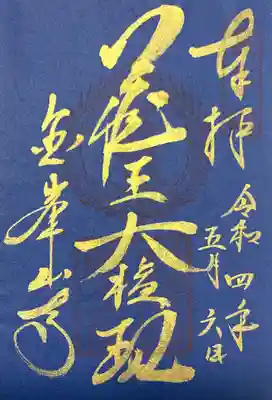 奉拝
令和四年
五月六日
蔵王大権現
金峯山寺